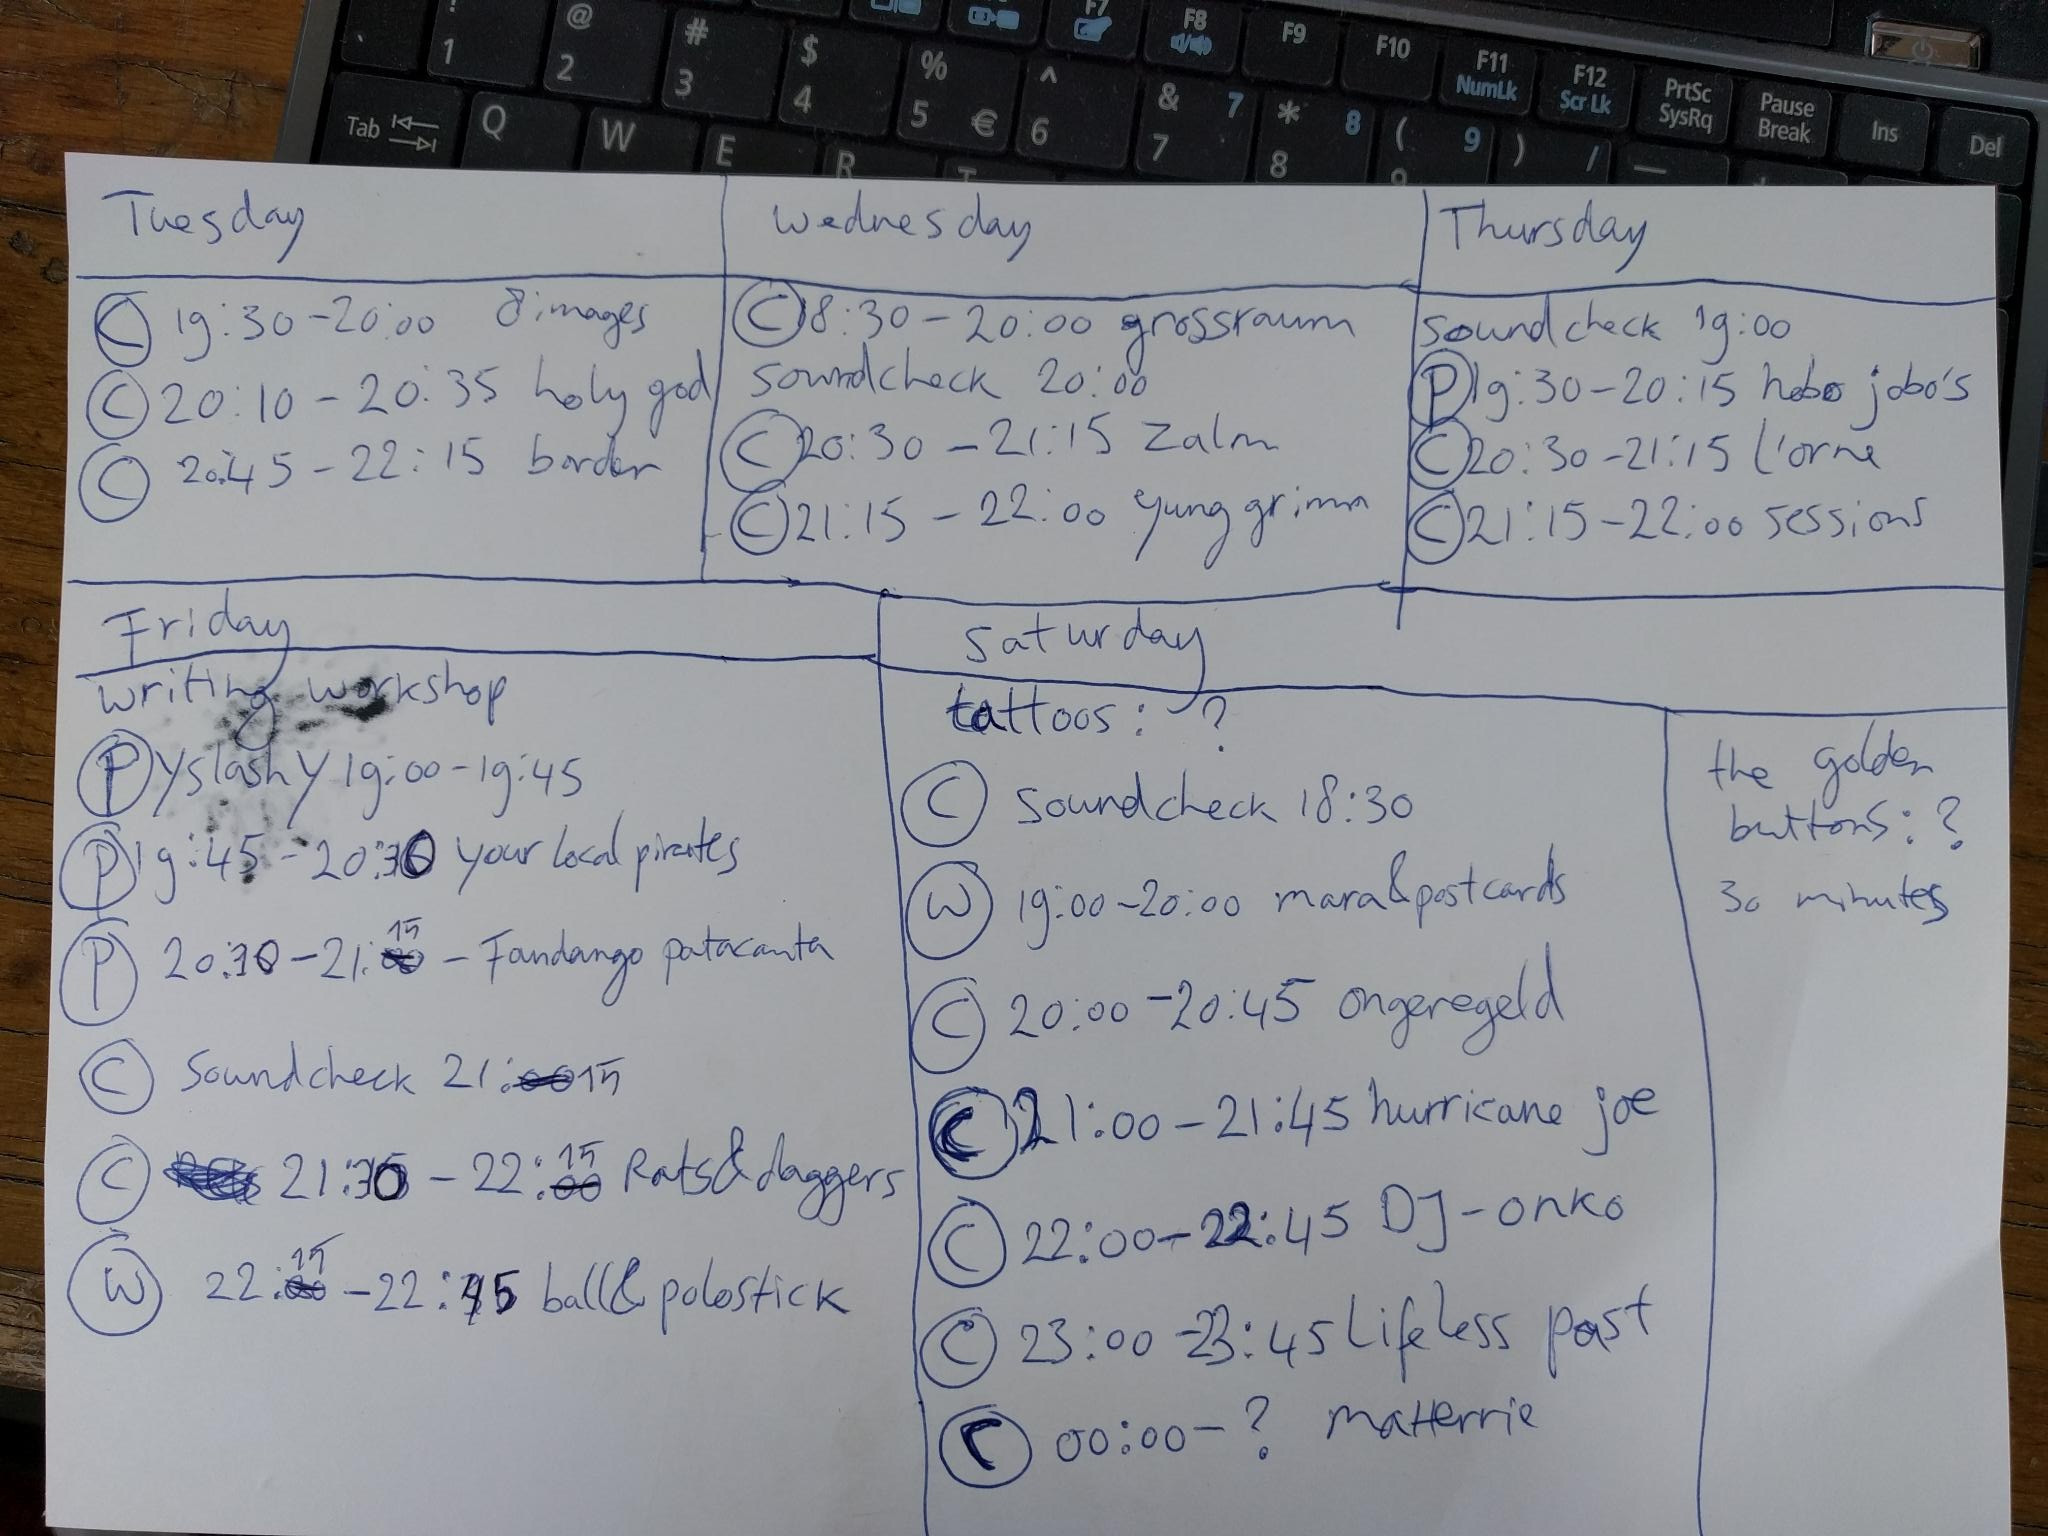 ! 1
@ 2
# 3
$ 4
% 5 €
^ 6
& 7 7
* 8 8
( 9 9
) /
F7
F8
F9
F10
F11 NumLk
F12 Scr Lk
PrtSc SysRq
Pause Break
Ins
Del
Tab Q W E R T
Tuesday
C 19:30-20:00 8images
C 20:10-20:35 holy god
C 20:45-22:15 border
Wednesday
C 18:30-20:00 grossraum
soundcheck 20:00
C 20:30-21:15 Zalm
C 21:15-22:00 yung grimm
Thursday
soundcheck 19:00
P 19:30-20:15 hobo jobo's
C 20:30-21:15 l'orne
C 21:15-22:00 sessions
Friday
writing workshop
P YslashY 19:00-19:45
P 19:45-20:30 your local pirates
P 20:30-21:15 - Fandango patacanta
C Soundcheck 21:15
C 21:30-22:15 Rats&daggers
W 22:15-22:45 ball& polostick
Saturday
tattoos: ?
C soundcheck 18:30
W 19:00-20:00 mara&postcards
C 20:00-20:45 ongeregeld
C 21:00-21:45 hurricane joe
C 22:00-22:45 DJ-onko
C 23:00-23:45 Lifeless past
C 00:00-? matterrie
the golden
buttons: ?
30 minutes